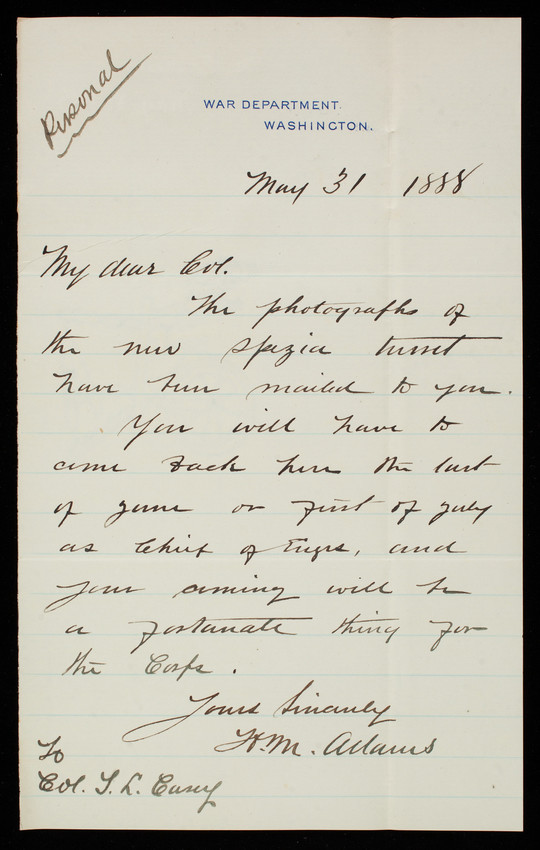 Personal
WAR DEPARTMENT.
WASHINGTON.
May 31 1888
My dear Col.
The photographs of
the new Spezia turret
have been mailed to you.
You will have to
come back here the last
of June or first of July
as Chief of Engrs, and
your coming will be
a fortunate thing for
the Corps.
Yours Sincerely
H. M. Adams
To
Col. T. L. Casey